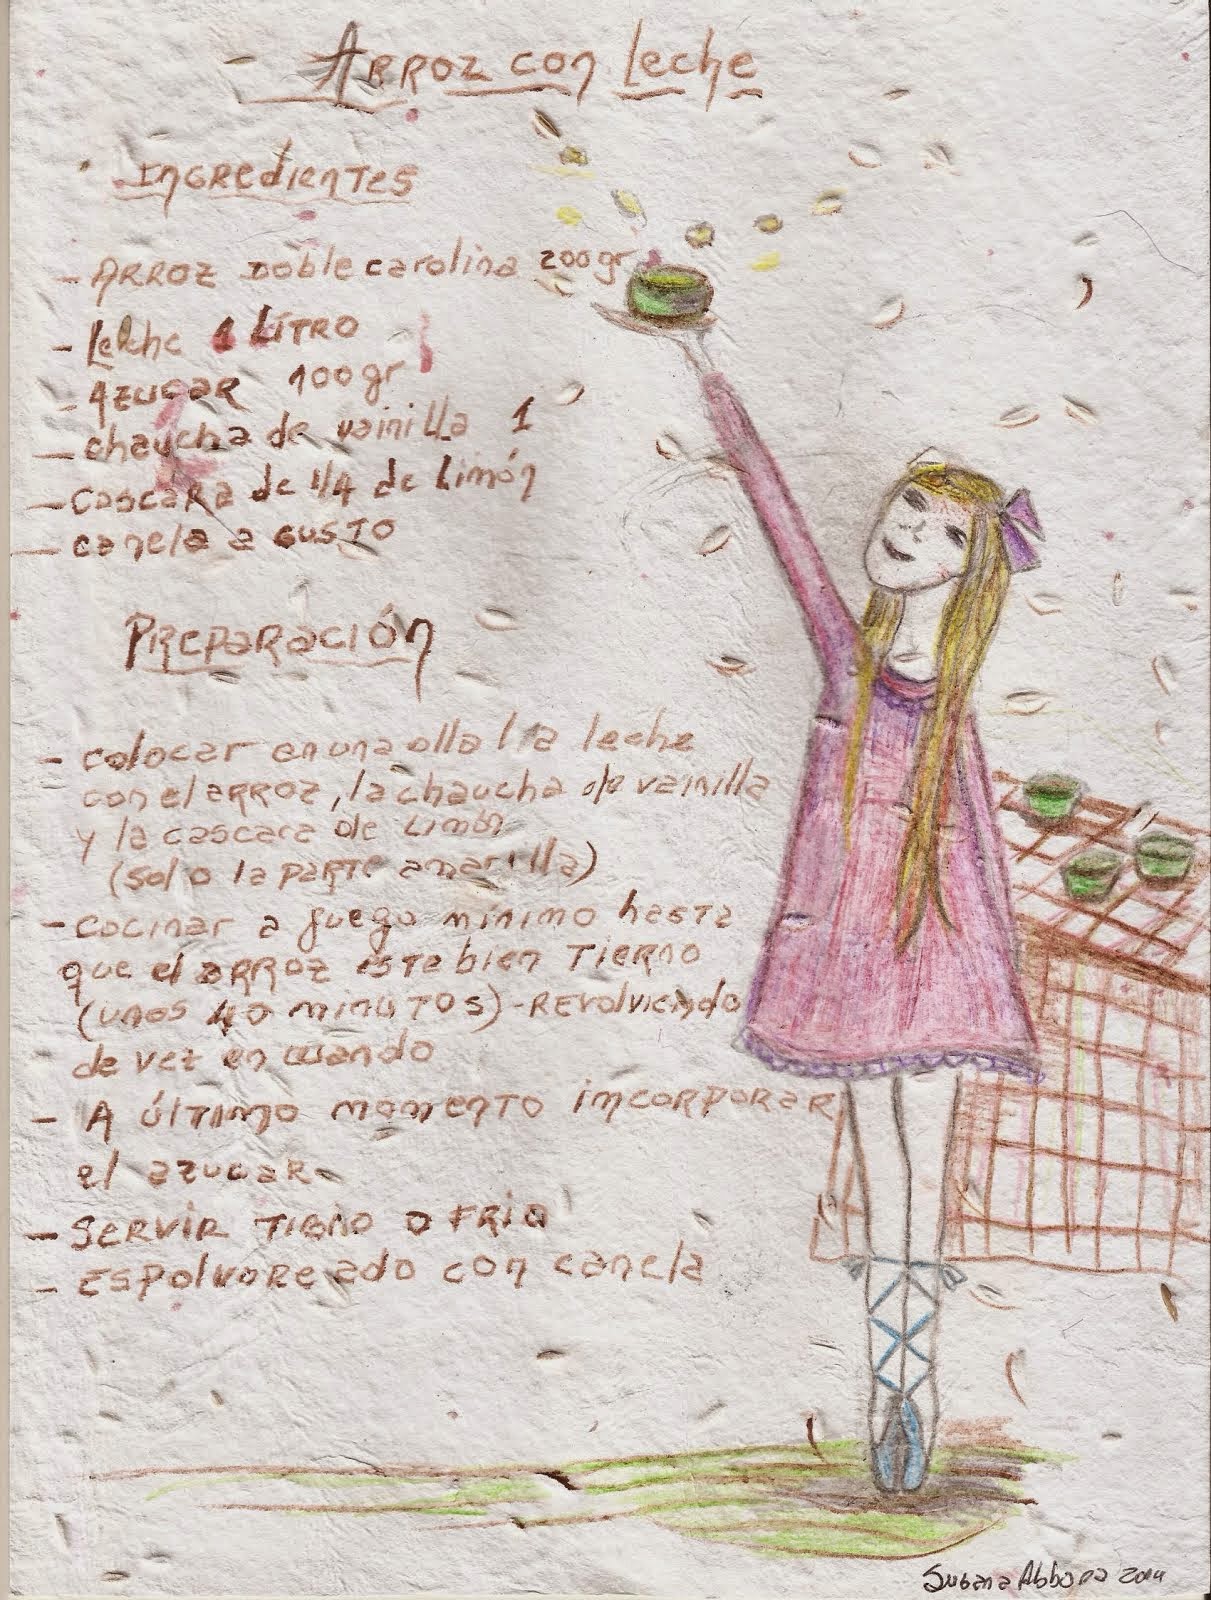 - Arroz con leche
· Ingredientes
- Arroz Doble carolina 200gr
- Leche 1 Litro
- Azucar 100gr
- chaucha de vainilla 1
- Cascara de 1/4 de Limón
- canela a gusto
Preparación
- colocar en una olla l la leche
con el arroz, la chaucha de vainilla
y la cascara de Limón
(solo la parte amarilla)
- cocinar a fuego minimo hasta
que el arroz este bien tierno
(unos 40 minutos) - Revolviendo
de vez en cuando
- A último momento incorporar
el azucar
- Servir tibio o frio
- Espolvoreado con canela
Susana Abbona 2014